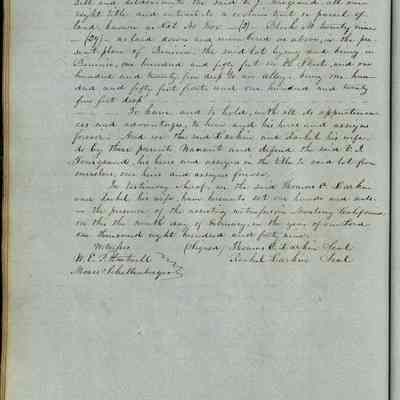 sell and deliver unto the said J. Hongsand, all our
right title and interest to a certain tract or parcel of
land known as Lot No Two — (2) — Block No twenty nine
— (29) — as laid down and numbered as above, in the pre
sent plan of Benicia. the said lot lying and being in
Benicia, one hundred and fifty feet on the Street, and one
hundred and twenty five deep to an alley. being one hun
dred and fifty feet front and one hundred and twenty
five feet deep
To have and to hold, with all its appurtenan
ces and advantages, to him and his heirs and assigns
forever. And we the said Larkin and Rachel his wife
do by these presents Warrant and defend the said
his heirs and assigns in the title to said lot from
ourselves, our heirs and assigns forever.
In testimony whereof, we the said Thomas O. Larkin
and Rachel his wife, have hereunto set our hands and seals
in the presence of the assisting witnesses in Monterey California
on this the ninth day of February, in the year of our Lord
one thousand eight hundred and forty nine.
Witness (Signed) Thomas O. Larkin Seal
W. E. P. Hartnell Rachel Larkin Seal
Moses Schallenberger